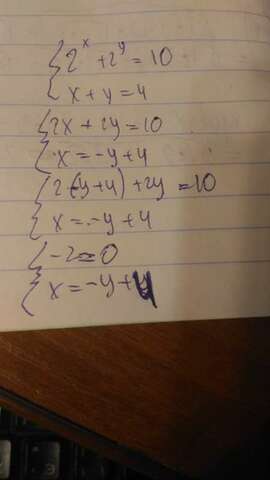 {2^x + 2^y = 10
x + y = 4
{2x + 2y = 10
x = -y + 4
{2(-y + 4) + 2y = 10
x = -y + 4
{-2 = 0
x = -y + 4